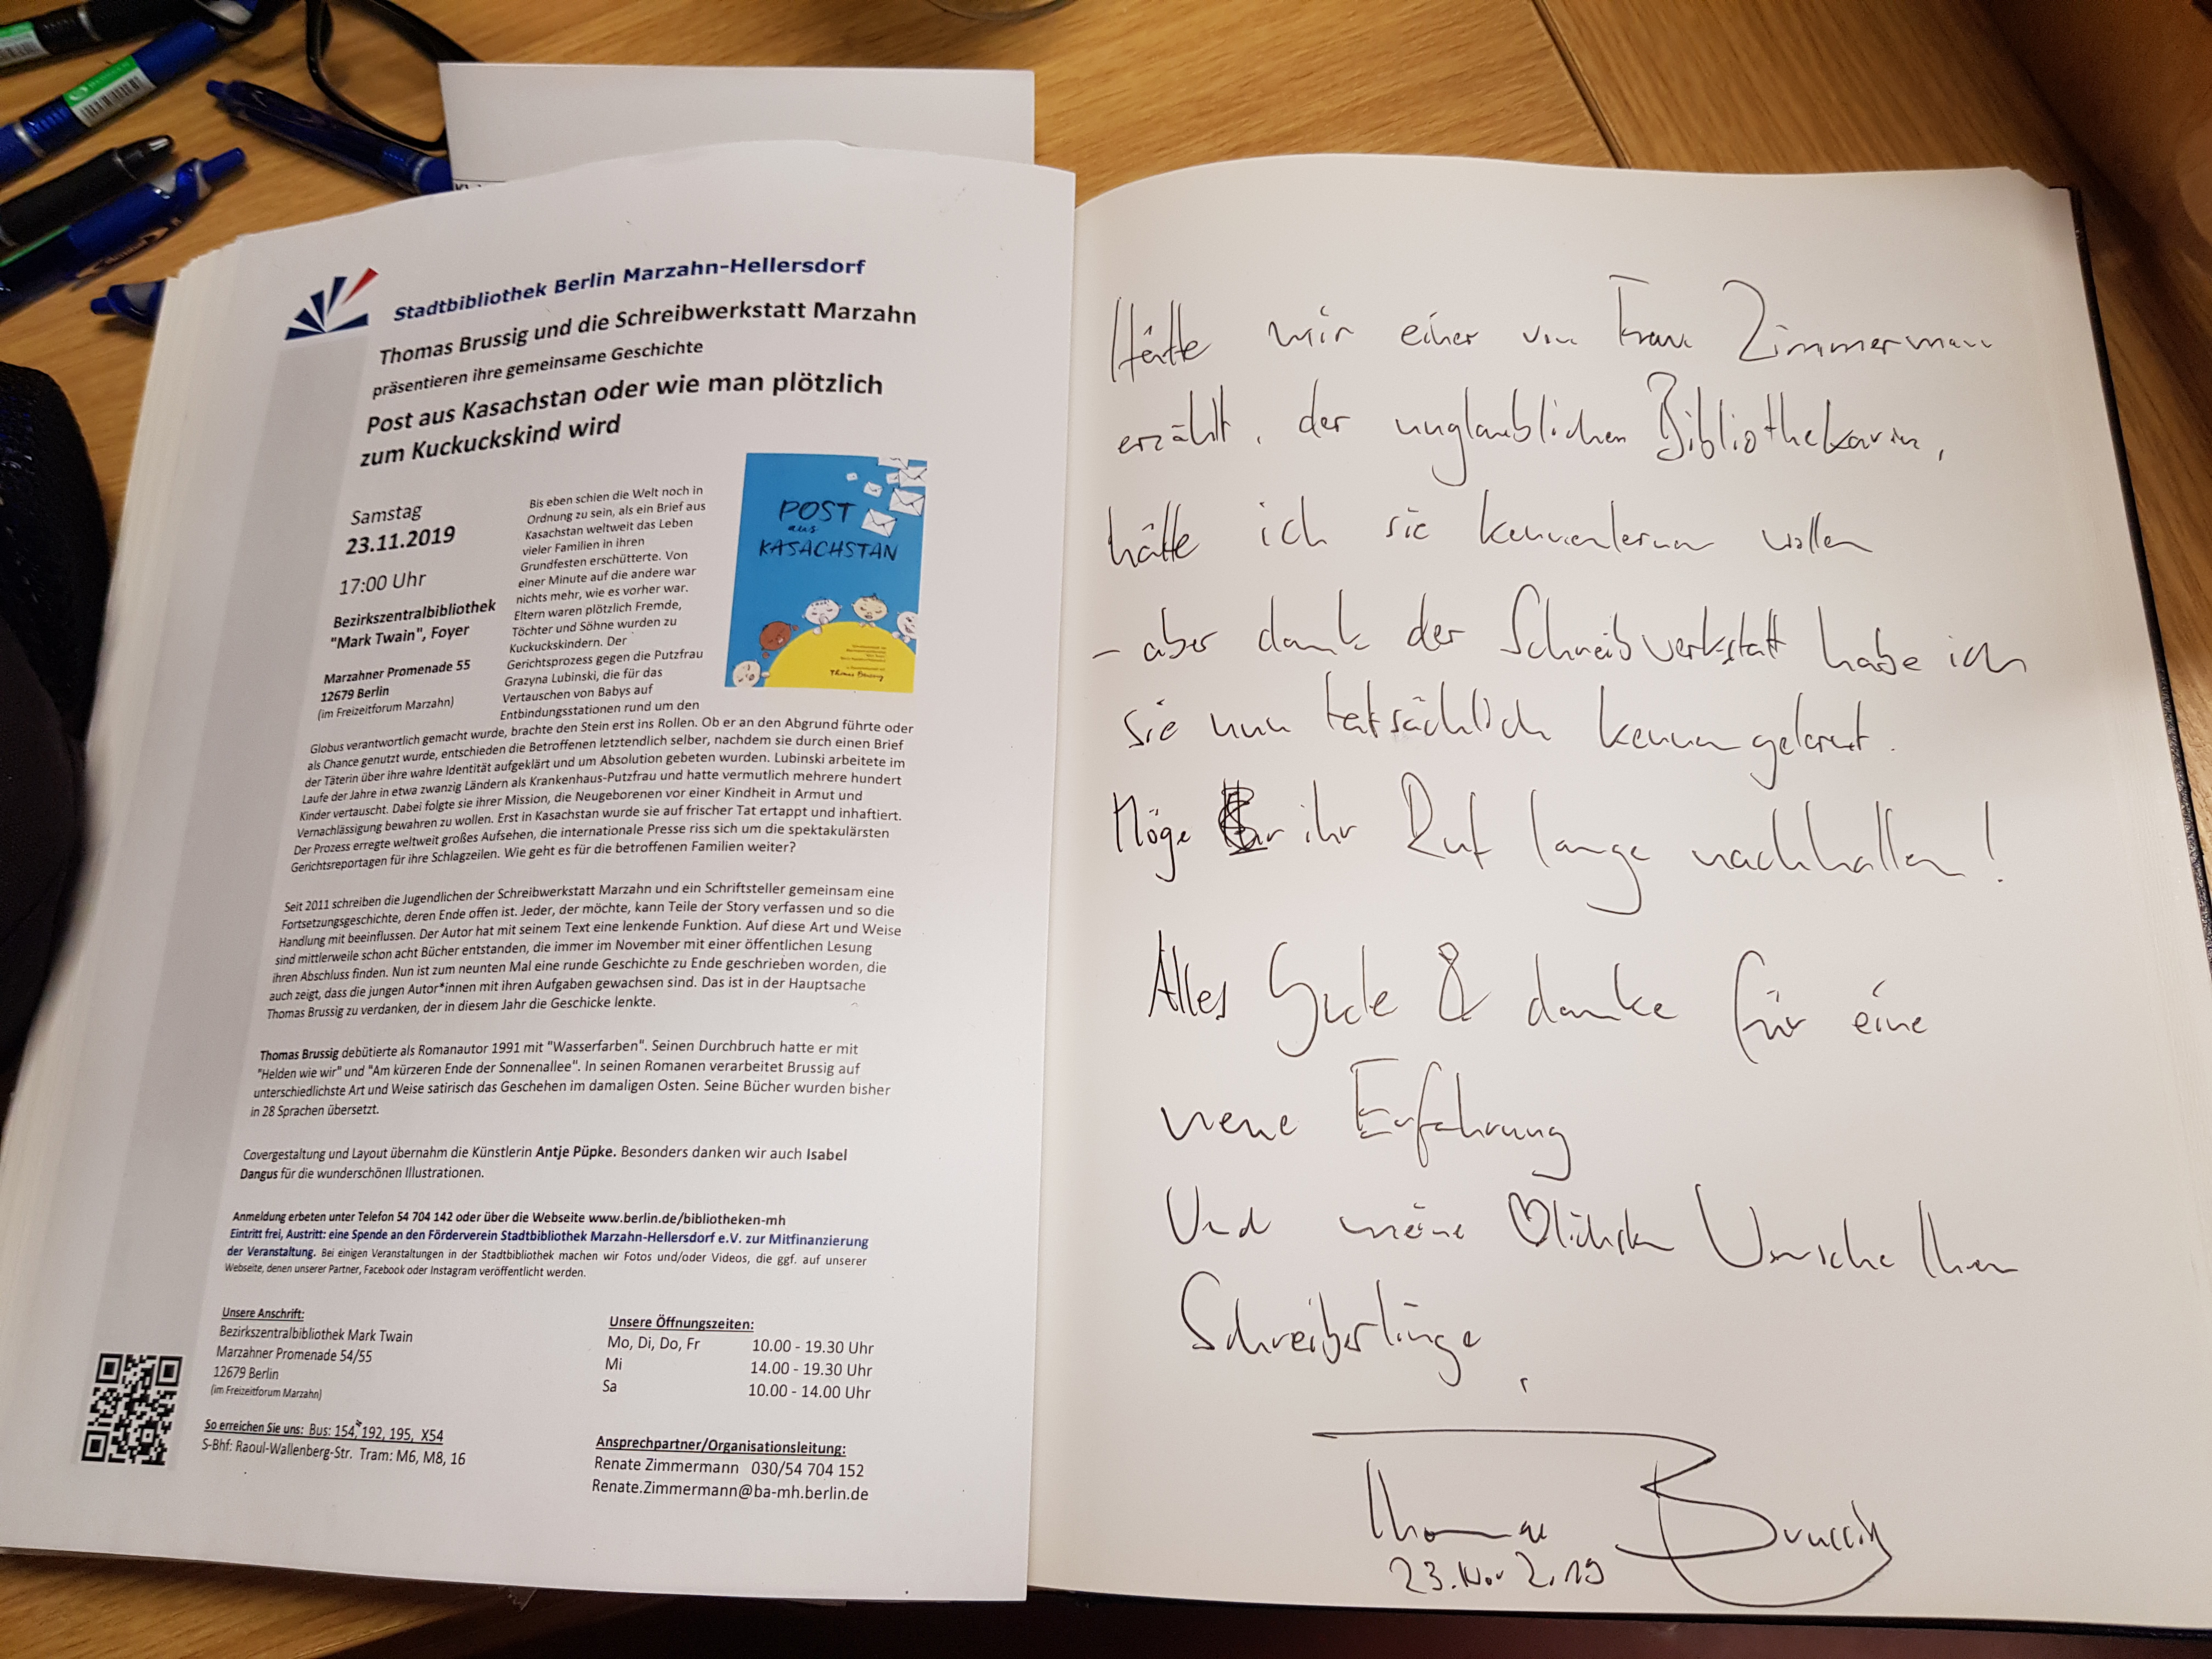 Stadtbibliothek Berlin Marzahn-Hellersdorf
Thomas Brussig und die Schreibwerkstatt Marzahn
präsentieren ihre gemeinsame Geschichte
Post aus Kasachstan oder wie man plötzlich
zum Kuckuckskind wird
Samstag
23.11.2019
17:00 Uhr
Bezirkszentralbibliothek
"Mark Twain", Foyer
Marzahner Promenade 55
12679 Berlin
(im Freizeitforum Marzahn)
Bis eben schien die Welt noch in
Ordnung zu sein, als ein Brief aus
Kasachstan weltweit das Leben
vieler Familien in ihren
Grundfesten erschütterte. Von
einer Minute auf die andere war
nichts mehr, wie es vorher war.
Eltern waren plötzlich Fremde,
Töchter und Söhne wurden zu
Kuckuckskindern. Der
Gerichtsprozess gegen die Putzfrau
Grazyna Lubinski, die für das
Vertauschen von Babys auf
Entbindungsstationen rund um den
POST
aus
KASACHSTAN
Thomas Brussig
Globus verantwortlich gemacht wurde, brachte den Stein erst ins Rollen. Ob er an den Abgrund führte oder
als Chance genutzt wurde, entschieden die Betroffenen letztendlich selber, nachdem sie durch einen Brief
der Täterin über ihre wahre Identität aufgeklärt und um Absolution gebeten wurden. Lubinski arbeitete im
Laufe der Jahre in etwa zwanzig Ländern als Krankenhaus-Putzfrau und hatte vermutlich mehrere hundert
Kinder vertauscht. Dabei folgte sie ihrer Mission, die Neugeborenen vor einer Kindheit in Armut und
Vernachlässigung bewahren zu wollen. Erst in Kasachstan wurde sie auf frischer Tat ertappt und inhaftiert.
Der Prozess erregte weltweit großes Aufsehen, die internationale Presse riss sich um die spektakulärsten
Gerichtsreportagen für ihre Schlagzeilen. Wie geht es für die betroffenen Familien weiter?
Seit 2011 schreiben die Jugendlichen der Schreibwerkstatt Marzahn und ein Schriftsteller gemeinsam eine
Fortsetzungsgeschichte, deren Ende offen ist. Jeder, der möchte, kann Teile der Story verfassen und so die
Handlung mit beeinflussen. Der Autor hat mit seinem Text eine lenkende Funktion. Auf diese Art und Weise
sind mittlerweile schon acht Bücher entstanden, die immer im November mit einer öffentlichen Lesung
ihren Abschluss finden. Nun ist zum neunten Mal eine runde Geschichte zu Ende geschrieben worden, die
auch zeigt, dass die jungen Autor*innen mit ihren Aufgaben gewachsen sind. Das ist in der Hauptsache
Thomas Brussig zu verdanken, der in diesem Jahr die Geschicke lenkte.
Thomas Brussig debütierte als Romanautor 1991 mit "Wasserfarben". Seinen Durchbruch hatte er mit
"Helden wie wir" und "Am kürzeren Ende der Sonnenallee". In seinen Romanen verarbeitet Brussig auf
unterschiedlichste Art und Weise satirisch das Geschehen im damaligen Osten. Seine Bücher wurden bisher
in 28 Sprachen übersetzt.
Covergestaltung und Layout übernahm die Künstlerin Antje Püpke. Besonders danken wir auch Isabel
Dangus für die wunderschönen Illustrationen.
Anmeldung erbeten unter Telefon 54 704 142 oder über die Webseite www.berlin.de/bibliotheken-mh
Eintritt frei, Austritt: eine Spende an den Förderverein Stadtbibliothek Marzahn-Hellersdorf e.V. zur Mitfinanzierung
der Veranstaltung. Bei einigen Veranstaltungen in der Stadtbibliothek machen wir Fotos und/oder Videos, die ggf. auf unserer
Webseite, denen unserer Partner, Facebook oder Instagram veröffentlicht werden.
Unsere Anschrift:
Bezirkszentralbibliothek Mark Twain
Marzahner Promenade 54/55
12679 Berlin
(im Freizeitforum Marzahn)
So erreichen Sie uns: Bus: 154, 192, 195, X54
S-Bhf: Raoul-Wallenberg-Str. Tram: M6, M8, 16
Unsere Öffnungszeiten:
Mo, Di, Do, Fr 10.00 - 19.30 Uhr
Mi 14.00 - 19.30 Uhr
Sa 10.00 - 14.00 Uhr
Ansprechpartner/Organisationsleitung:
Renate Zimmermann 030/54 704 152
Renate.Zimmermann@ba-mh.berlin.de
Hätte mir einer von Frau Zimmermann
erzählt, der unglaublichen Bibliothekarin,
hätte ich sie kennenlernen wollen
– aber dank der Schreibwerkstatt habe ich
sie nun tatsächlich kennengelernt.
Möge ihr Ruf lange nachhallen!
Alles Gute & danke für eine
neue Erfahrung
Und meine ♡lichsten Wünsche Ihren
Schreiberlingen,
Thomas Brussig
23. Nov 2019